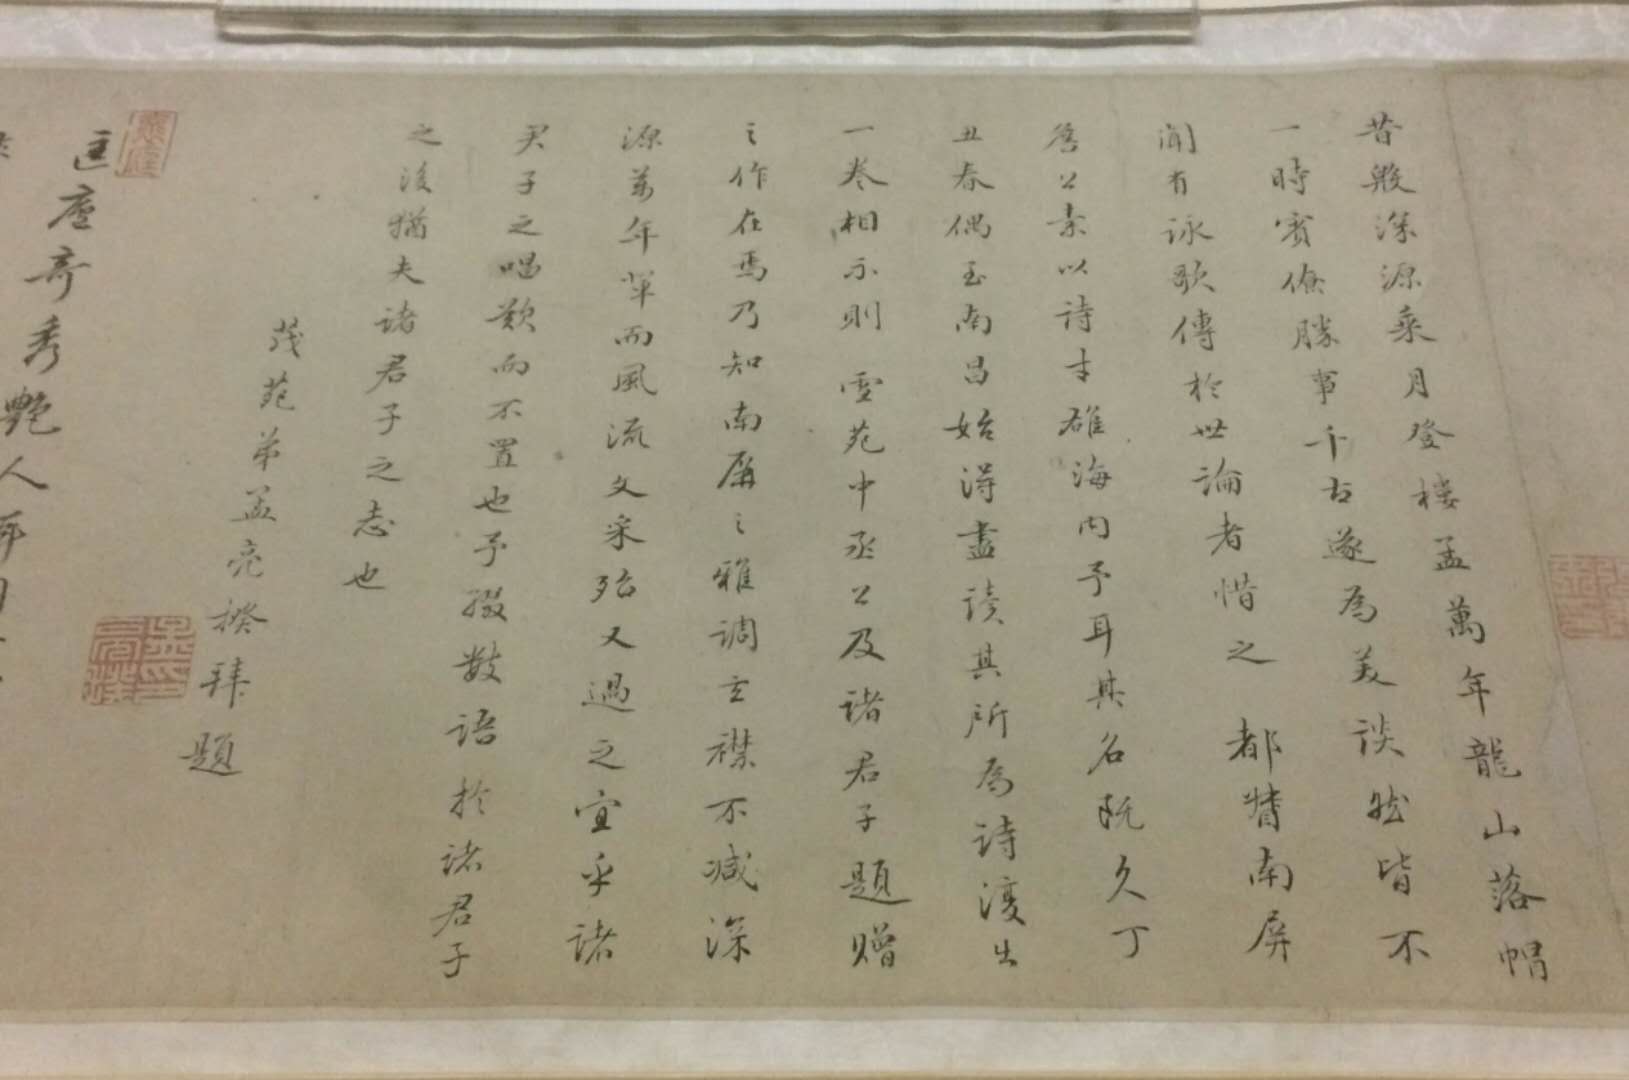 昔殷深源乘月登樓孟萬年龍山落帽
一時賓僚勝事千古遂為美談然皆不
聞有詠歌傳於世論者惜之都督南屏
詹公素以詩才雄海內予耳其名既久丁
丑春偶至南昌始得盡讀其所為詩復出
一卷相示則雪苑中丞公及諸君子題贈
之作在焉乃知南屏之雅調玄襟不減深
源萬年輩而風流文采殆又過之宜乎諸
君子之唱歎而不置也予綴數語於諸君子
之後猶夫諸君子之志也
茂苑弟孟亮揆拜題
匡廬奇秀艷人